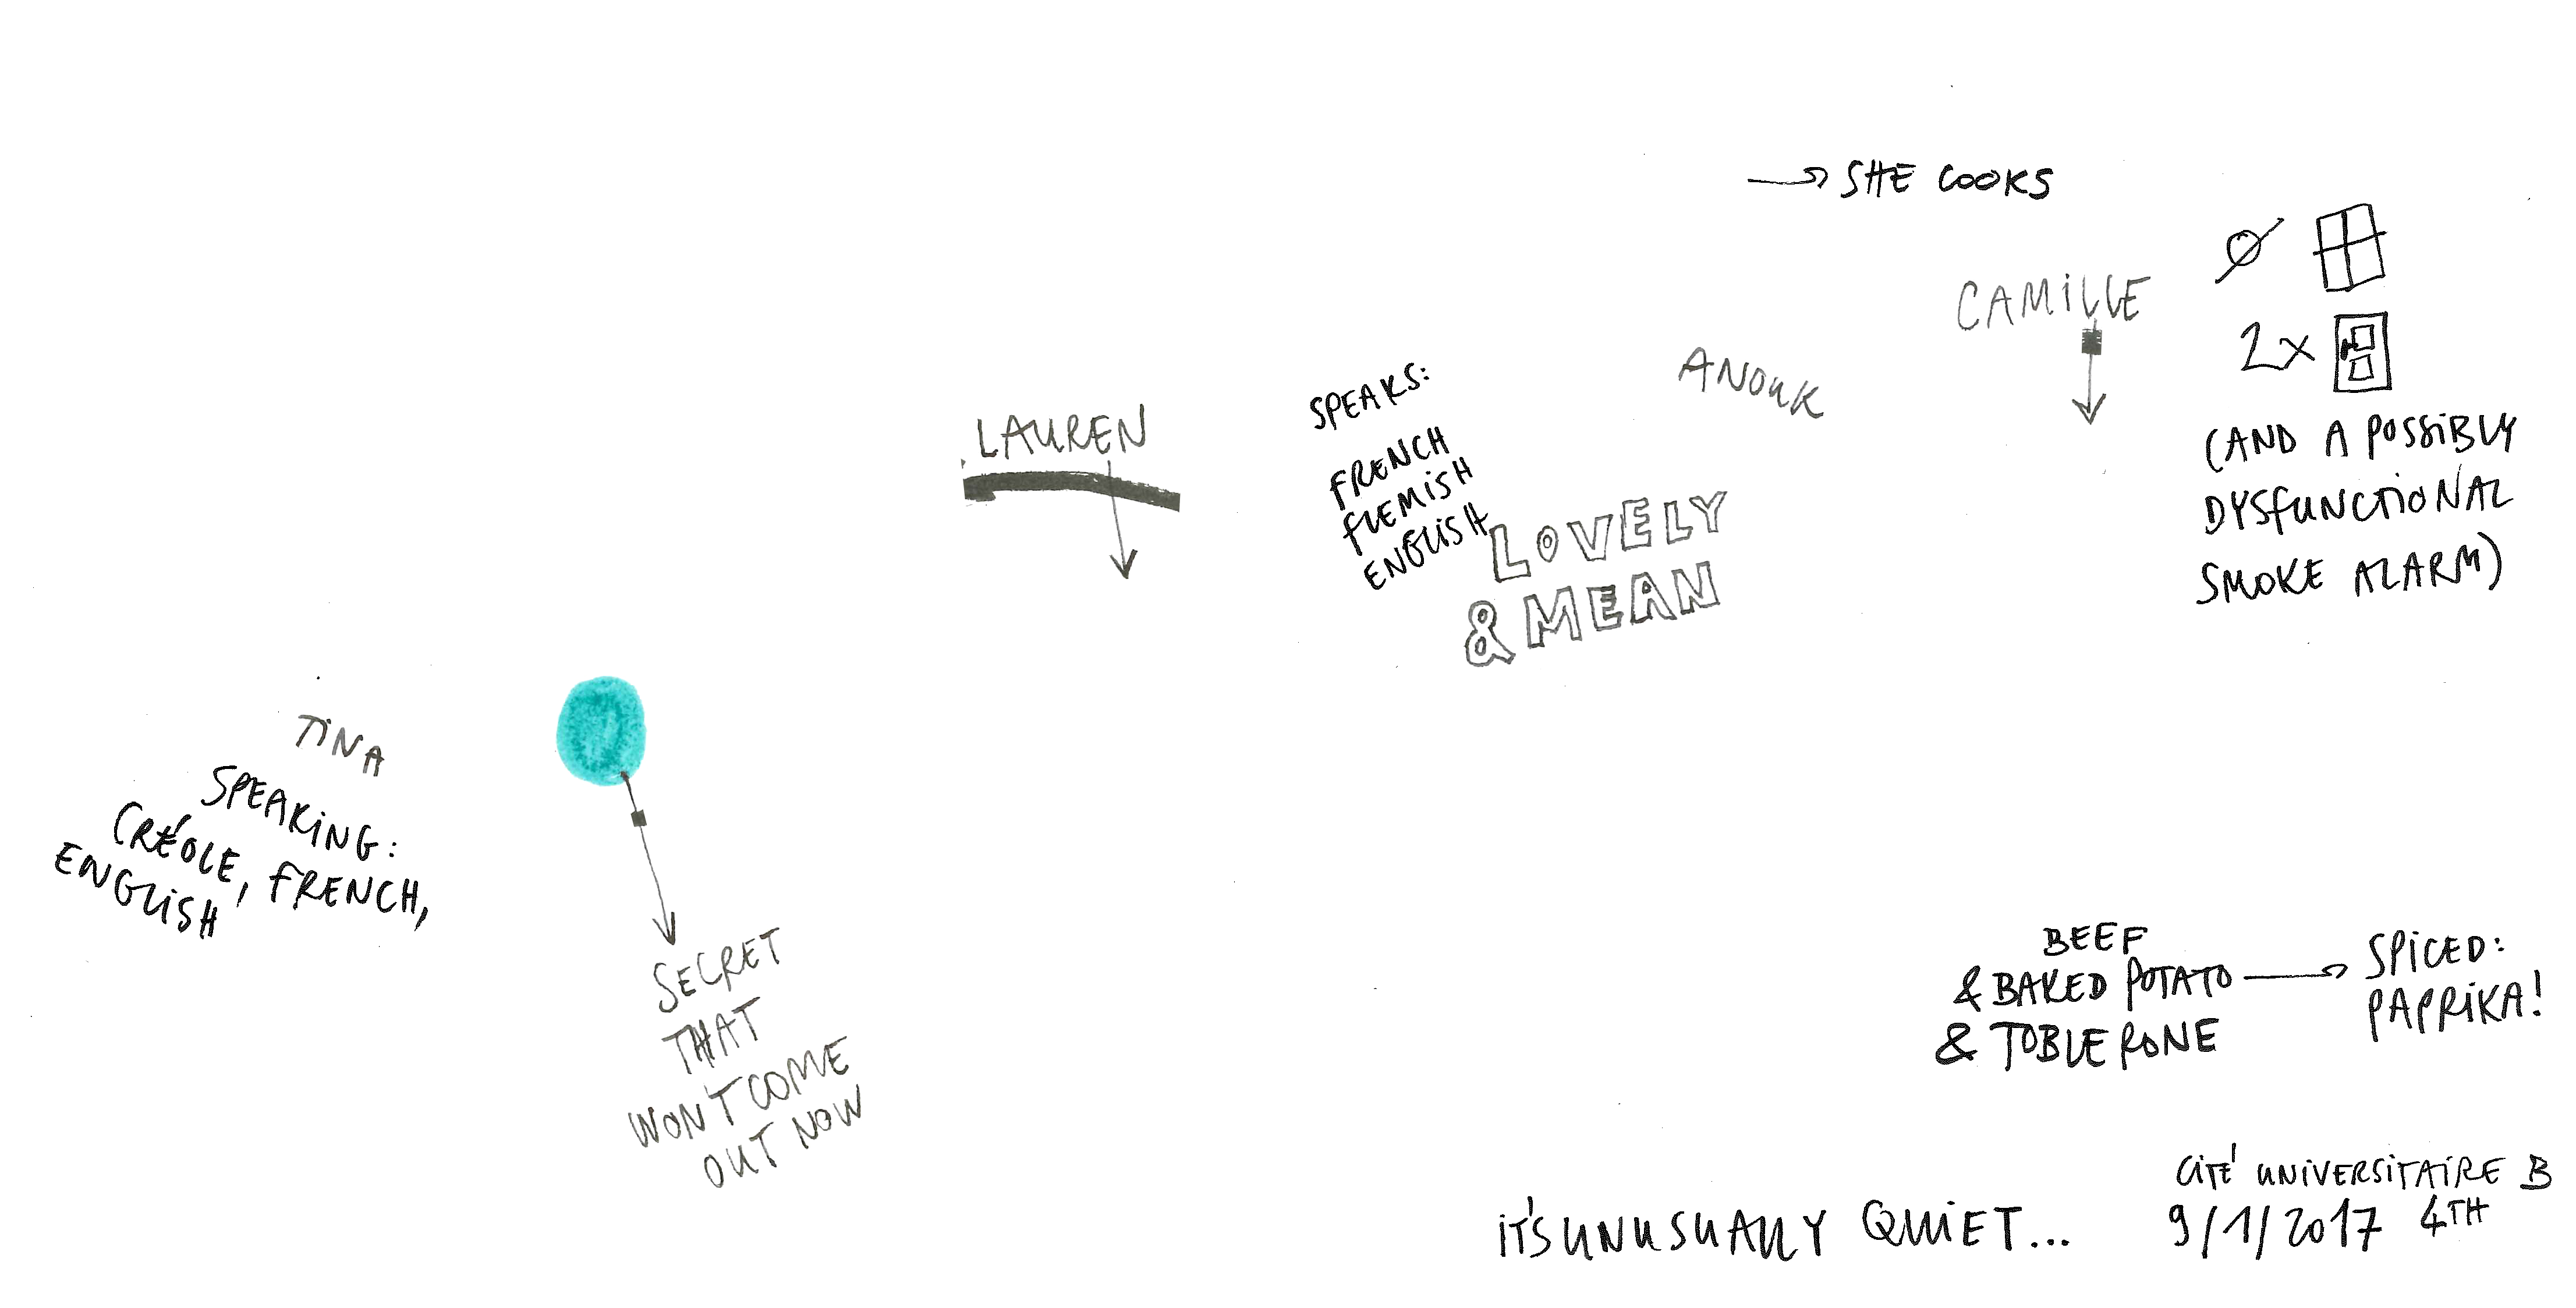 → SHE COOKS
CAMILLE
2x
(AND A POSSIBLY
DYSFUNCTIONAL
SMOKE ALARM)
ANOUK
SPEAKS:
FRENCH
FLEMISH
ENGLISH
LAUREN
LOVELY
& MEAN
TINA
SPEAKING:
CRÉOLE, FRENCH,
ENGLISH
SECRET
THAT
WON'T COME
OUT NOW
BEEF
& BAKED POTATO → SPICED:
PAPRIKA!
& TOBLERONE
IT'S UNUSUALLY QUIET...
CITÉ UNIVERSITAIRE B
9/1/2017 4TH